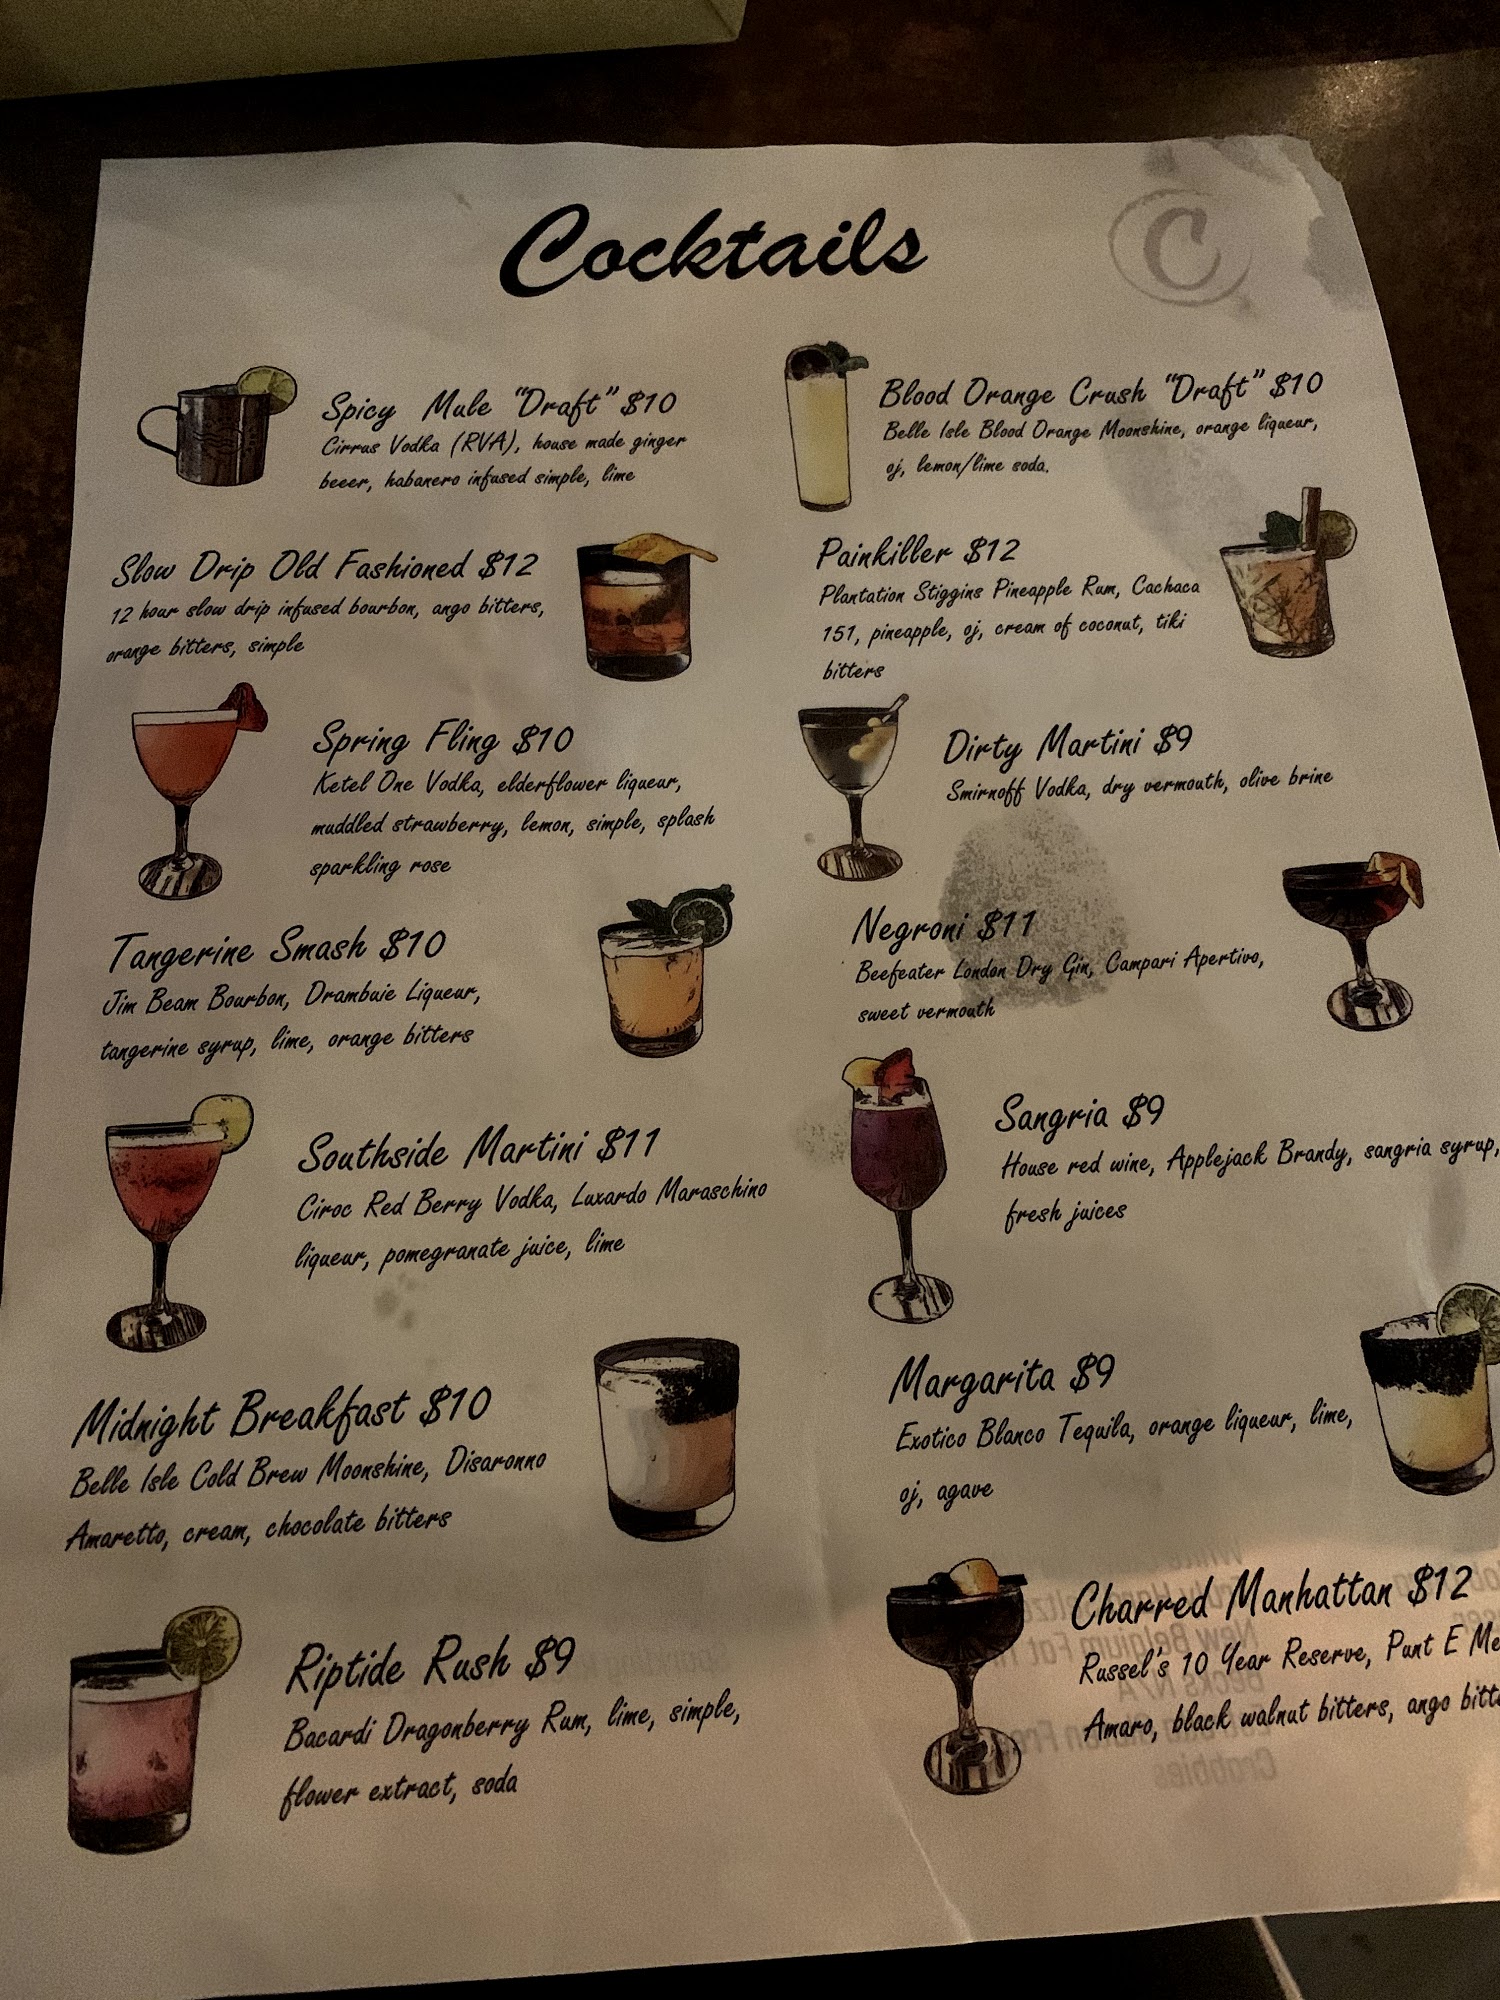 Cocktails
C
Spicy Mule "Draft" $10
Cirrus Vodka (RVA), house made ginger
beeer, habanero infused simple, lime
Slow Drip Old Fashioned $12
12 hour slow drip infused bourbon, ango bitters,
orange bitters, simple
Spring Fling $10
Ketel One Vodka, elderflower liqueur,
muddled strawberry, lemon, simple, splash
sparkling rose
Tangerine Smash $10
Jim Beam Bourbon, Drambuie Liqueur,
tangerine syrup, lime, orange bitters
Southside Martini $11
Ciroc Red Berry Vodka, Luxardo Maraschino
liqueur, pomegranate juice, lime
Midnight Breakfast $10
Belle Isle Cold Brew Moonshine, Disaronno
Amaretto, cream, chocolate bitters
Riptide Rush $9
Bacardi Dragonberry Rum, lime, simple,
flower extract, soda
Blood Orange Crush "Draft" $10
Belle Isle Blood Orange Moonshine, orange liqueur,
oj, lemon/lime soda.
Painkiller $12
Plantation Stiggins Pineapple Rum, Cachaca
151, pineapple, oj, cream of coconut, tiki
bitters
Dirty Martini $9
Smirnoff Vodka, dry vermouth, olive brine
Negroni $11
Beefeater London Dry Gin, Campari Apertivo,
sweet vermouth
Sangria $9
House red wine, Applejack Brandy, sangria syrup,
fresh juices
Margarita $9
Exotico Blanco Tequila, orange liqueur, lime,
oj, agave
Charred Manhattan $12
Russel's 10 Year Reserve, Punt E Me
Amaro, black walnut bitters, ango bitt
New Belgium Fat
Becks N/A
Crabbies